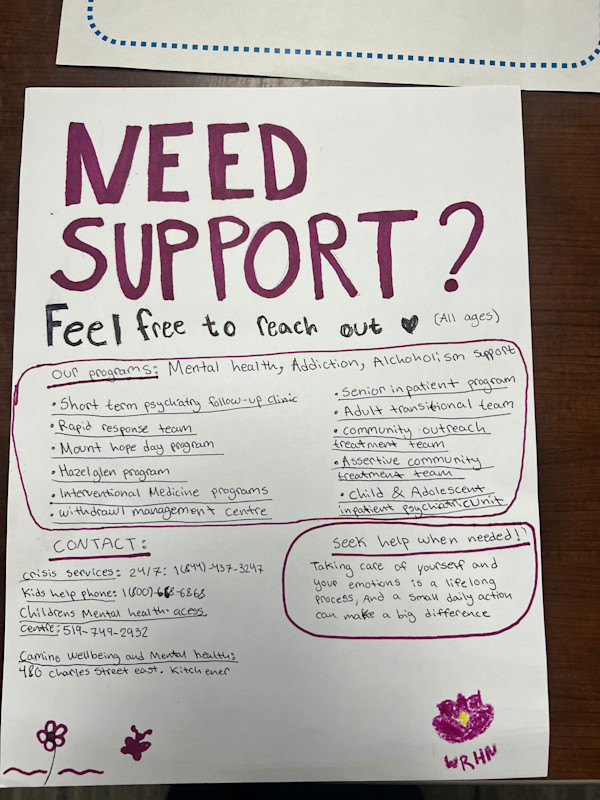 NEED
SUPPORT?
Feel free to reach out ♥ (All ages)
our programs: Mental health, Addiction, Alchoholism support
• Short term psychiatry follow-up clinic
• Rapid response team
• Mount hope day program
• Hazelglen program
• Interventional Medicine programs
• withdrawl management centre
• Senior inpatient program
• Adult transitional team
• community outreach
treatment team
• Assertive community
treatment team
• Child & Adolescent
inpatient psychiatric unit
CONTACT:
crisis services: 24/7: 1(844)-437-3247
Kids help phone: 1(800)-668-6868
Childrens Mental health acess
centre: 519-749-2932
Camino wellbeing and Mental health:
480 charles Street east. Kitchener
Seek help when needed!
Taking care of yourself and
your emotions is a lifelong
process, And a small daily action
can make a big difference
WRHN